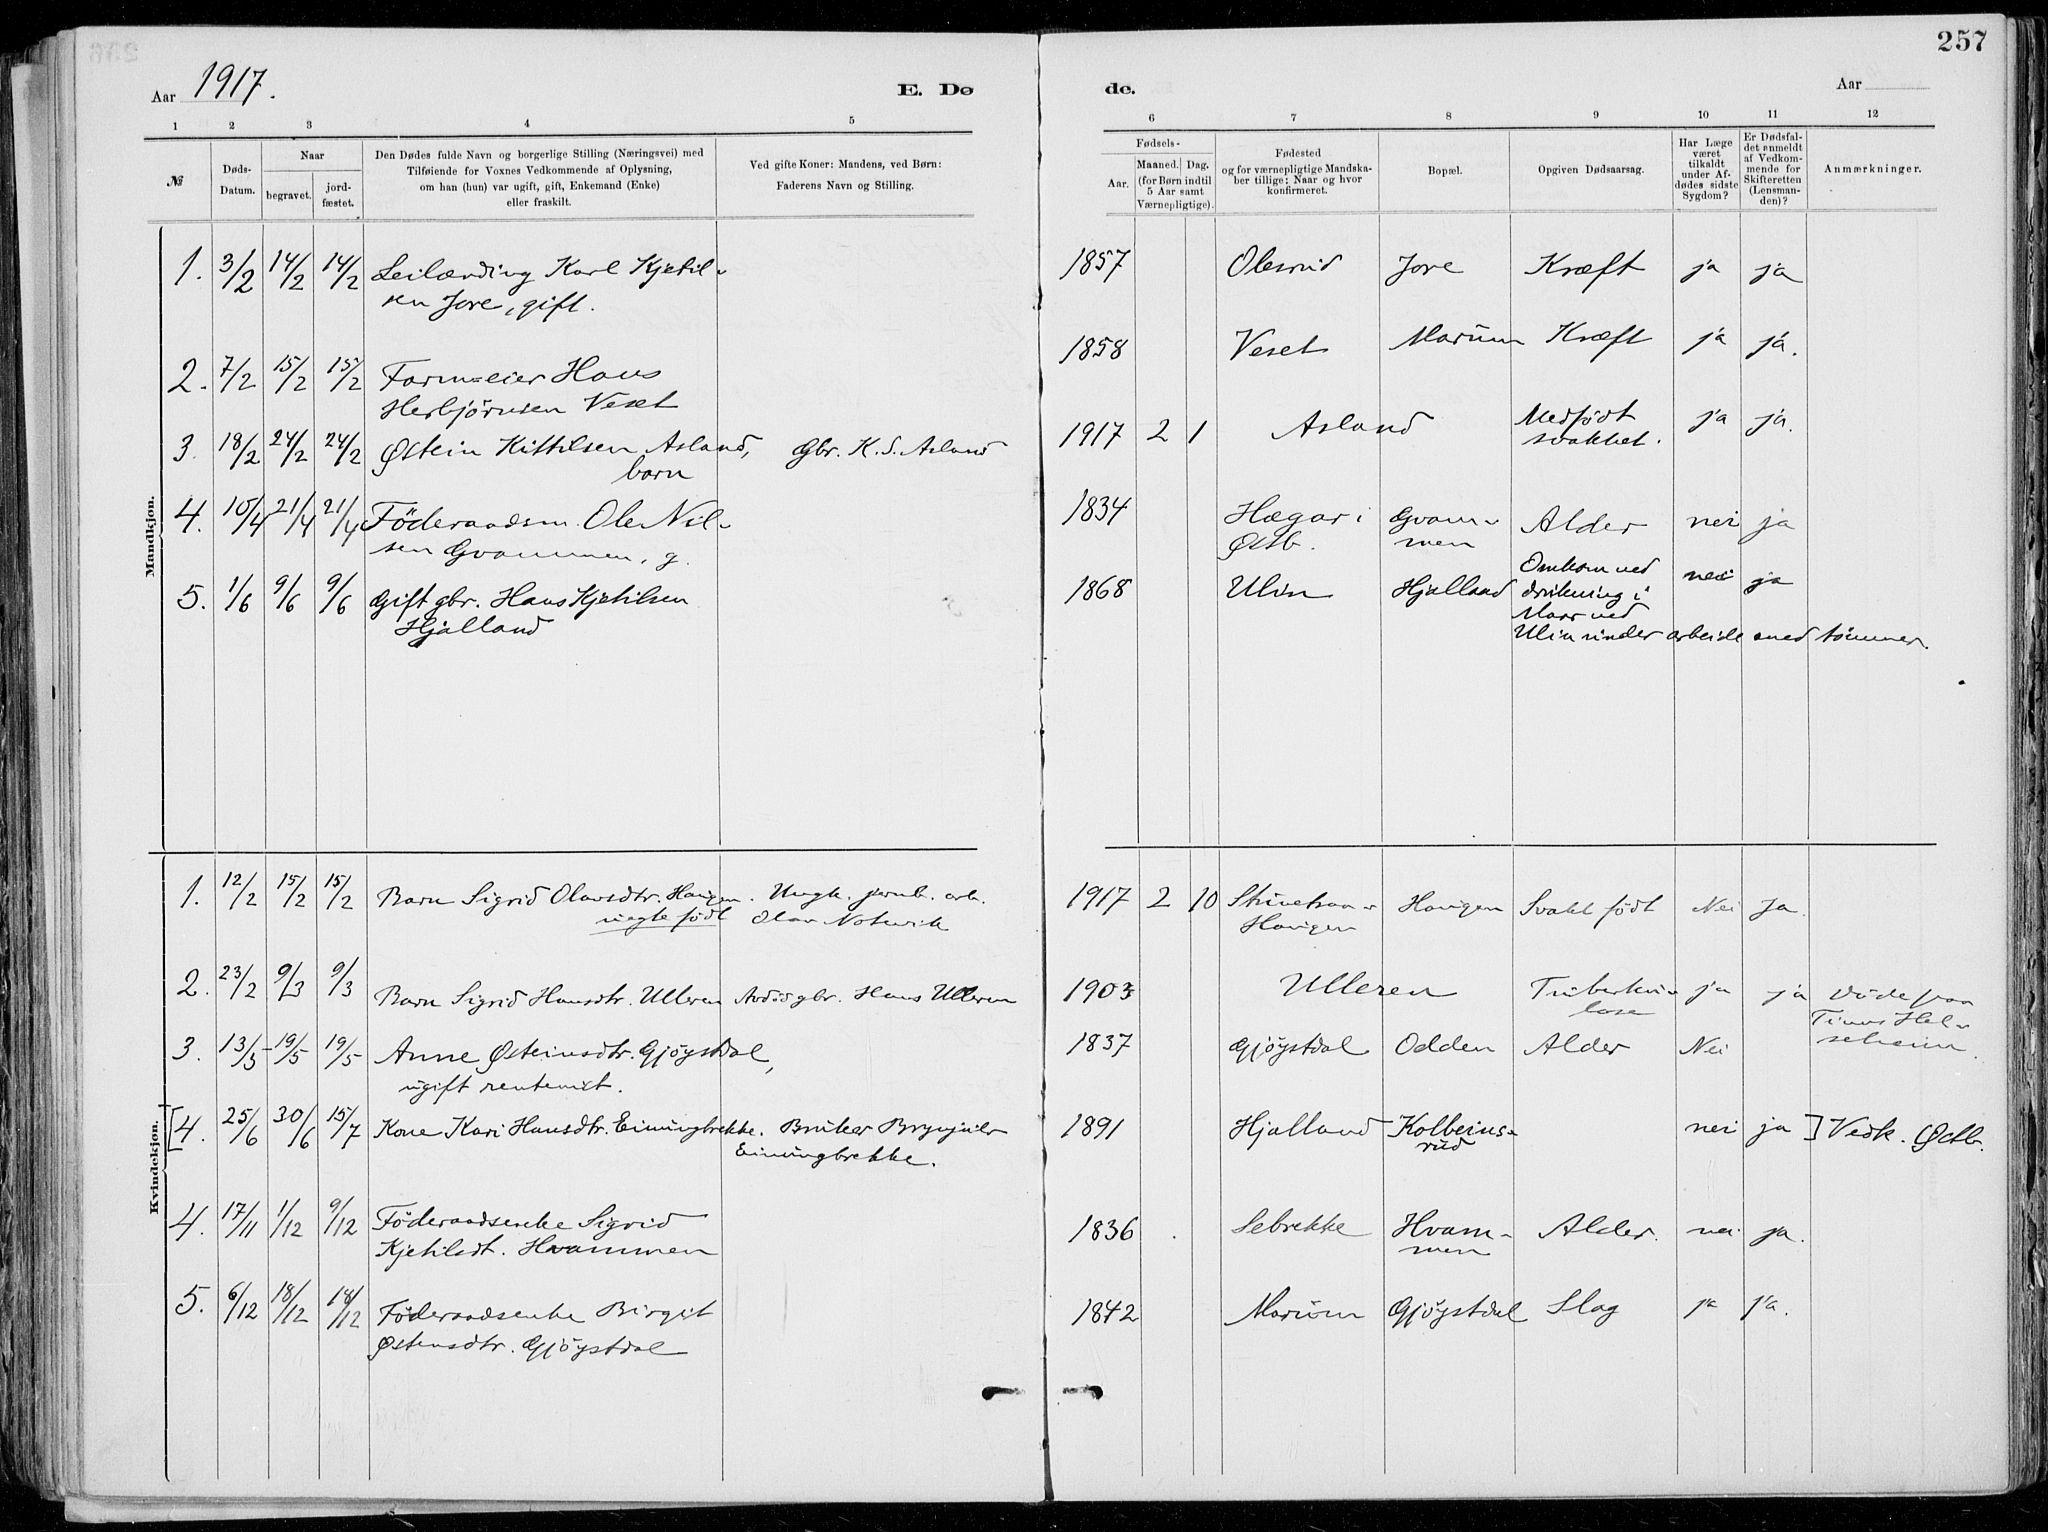 257
Aar 1917.
E. Dø
de.
Aar
1 2 3 4 5
6 7 8 9 10 11 12
№
Døds-
Datum.
Naar
begravet.
jord-
fæstet.
Den Dødes fulde Navn og borgerlige Stilling (Næringsvei) med
Tilføiende for Voxnes Vedkommende af Oplysning,
om han (hun) var ugift, gift, Enkemand (Enke)
eller fraskilt.
Ved gifte Koner: Mandens, ved Børn:
Faderens Navn og Stilling.
Fødsels-
Aar.
Maaned. Dag.
(for Børn indtil
5 Aar samt
Værnepligtige).
Fødested
og for værnepligtige Mandska-
ber tillige: Naar og hvor
konfirmeret.
Bopæl.
Opgiven Dødsaarsag.
Har Læge
været
tilkaldt
under Af-
dødes sidste
Sygdom?
Er Dødsfal-
det anmeldt
af Vedkom-
mende for
Skifteretten
(Lensman-
den)?
Anmærkninger.
Mandkjøn.
1. 3/2 14/2 14/2 Leilænding Karl Kjetil- 1857 Olesrud Jore Kræft ja ja
sen Jore, gift.
2. 7/2 15/2 15/2 Farm=eier Hans 1858 Veset Marum Kræft ja ja.
Herbjørnsen Veset
3. 18/2 24/2 24/2 Østein Kittilsen Asland, Gbr. K. S. Asland 1917 2 1 Asland Medfødt ja ja.
barn svakhet.
4. 15/4 21/4 21/4 Föderaadsm. Ole Nil- 1834 Hægar i Gvam- Alder nei ja
sen Gvammen, g. Østb. men
5. 1/6 9/6 9/6 Gift gbr. Hans Kjetilsen 1868 Ulin Hjalland Omkom ved nei ja
Hjalland drukning i
Maar ved
Ulin under arbeide med tømmer.
Kvindekjøn.
1. 12/2 15/2 15/2 Barn Sigrid Olavsdtr. Haugen. Ungk. jernb. arb. 1917 2 10 Haugen Svakt født Nei Ja.
uegte født Olav Notevik Haugen
2. 23/2 9/3 9/3 Barn Sigrid Hansdtr. Ulleren gbr. Hans Ulleren 1903 Ulleren Tuberku- ja ja Døde paa
lose Tinns Hel-
seheim.
3. 13/5 19/5 19/5 Anne Østeinsdtr. Gjøystdal, 1837 Gjøystdal Odden Alder Nei
ugift rentenist.
[4. 25/6 30/6 15/7 Kone Kari Hansdtr. Einungbrekke. Bruker Brynjulv 1891 Hjalland Kolbeins- nei ja ] Vedk. Østb.
Einungbrekke. rud
4. 17/11 1/12 9/12 Föderaadsenke Sigrid 1836 Sebrekke Hvam- Alder. nei ja.
Kjetilsdt. Hvammen men
5. 6/12 18/12 18/12 Föderaadsenke Birgit 1842 Marum Gjøystdal Slag ja ja.
Østensdtr. Gjøystdal